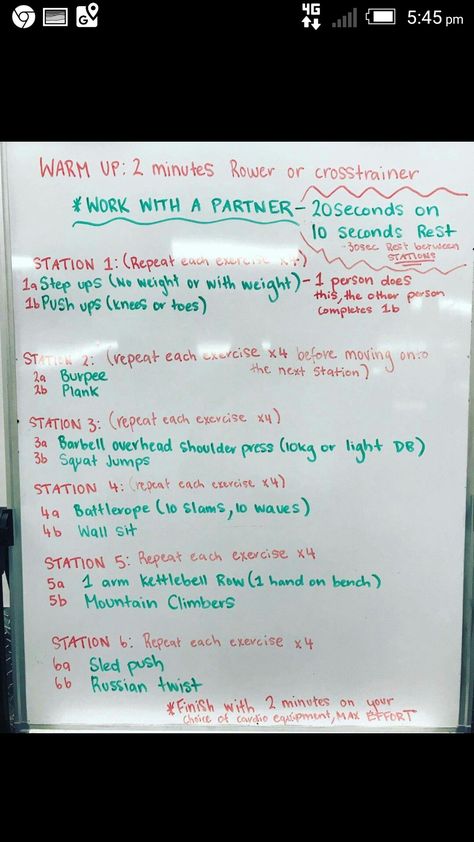 4G
5:45 pm
WARM UP: 2 minutes Rower or crosstrainer
*WORK WITH A PARTNER - 20 Seconds on
10 seconds Rest
- 30sec Rest between
STATIONS
STATION 1: (Repeat each exercise x4)
1a Step ups (No weight or with weight) - 1 person does
this, the other person
completes 1b
1b Push ups (knees or toes)
STATION 2: (repeat each exercise x4 before moving onto
the next station)
2a Burpee
2b Plank
STATION 3: (repeat each exercise x4)
3a Barbell overhead shoulder press (10kg or light DB)
3b Squat Jumps
STATION 4: (repeat each exercise x4)
4a Battlerope (10 slams, 10 waves)
4b Wall sit
STATION 5: Repeat each exercise x4
5a 1 arm Kettlebell Row (1 hand on bench)
5b Mountain Climbers
STATION 6: Repeat each exercise x4
6a Sled push
6b Russian twist
*Finish with 2 minutes on your
choice of cardio equipment, MAX EFFORT